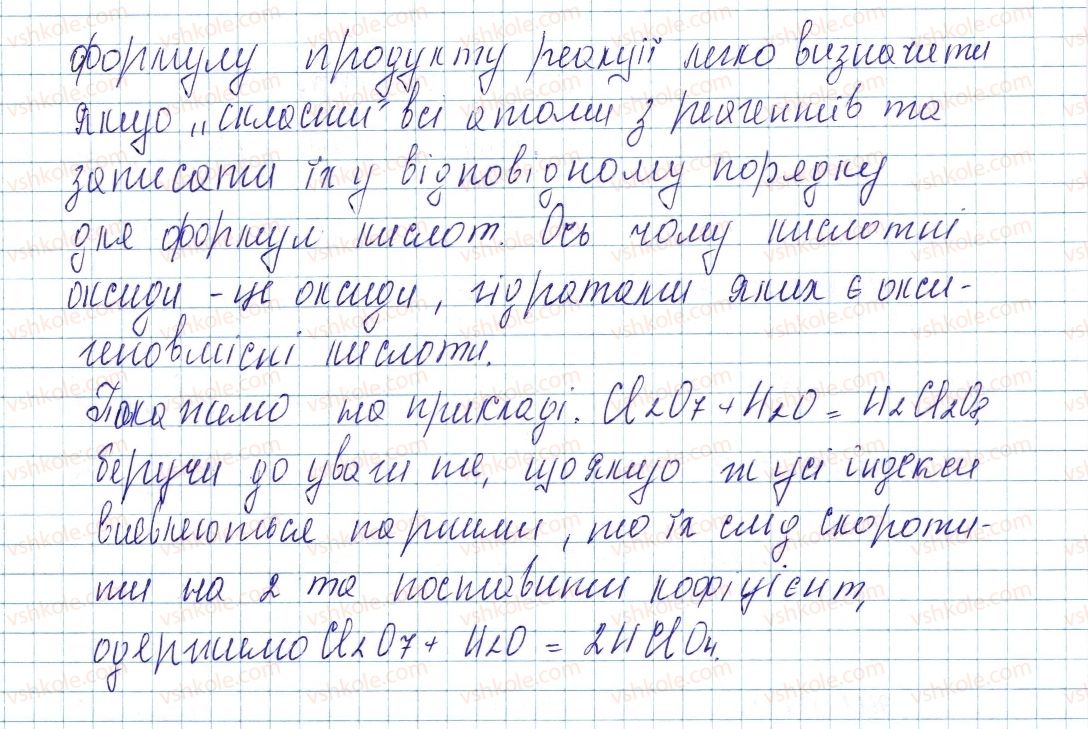 формулу продукту реакції легко визначити
якщо „скласти" всі атоми з реагентів та
записати їх у відповідному порядку
для формул кислот. Ось чому кислотні
оксиди - це оксиди, гідратами яких є окси-
геновмісні кислоти.
Покажемо на прикладі. Cl2O7 + H2O = H2Cl2O8,
беручи до уваги те, що якщо ж усі індекси
виявляються парними, то їх слід скороти-
ти на 2 та поставити кофіцієнт,
одержимо Cl2O7 + H2O = 2HClO4.